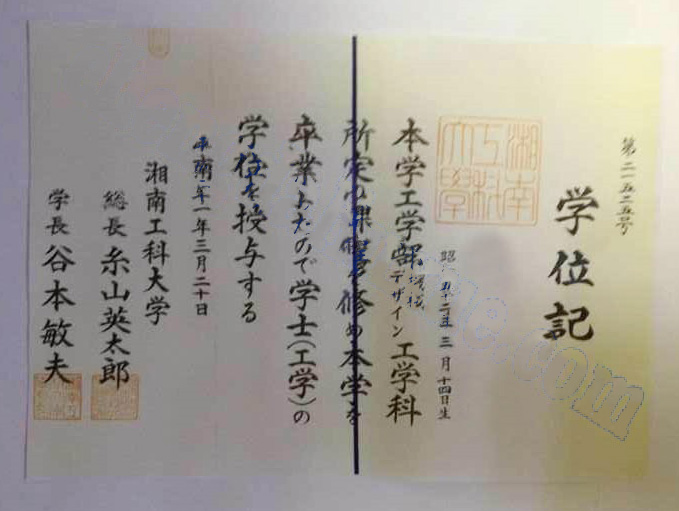 第二一五二五号
学位記
湘南工科大學
昭 五十二年三月十四日生
本学工学部機械デザイン工学科
所定の課程を修め本学を
卒業したので学士(工学)の
学位を授与する
年三月二十日
湘南工科大学
総長 糸山英太郎
学長 谷本敏夫